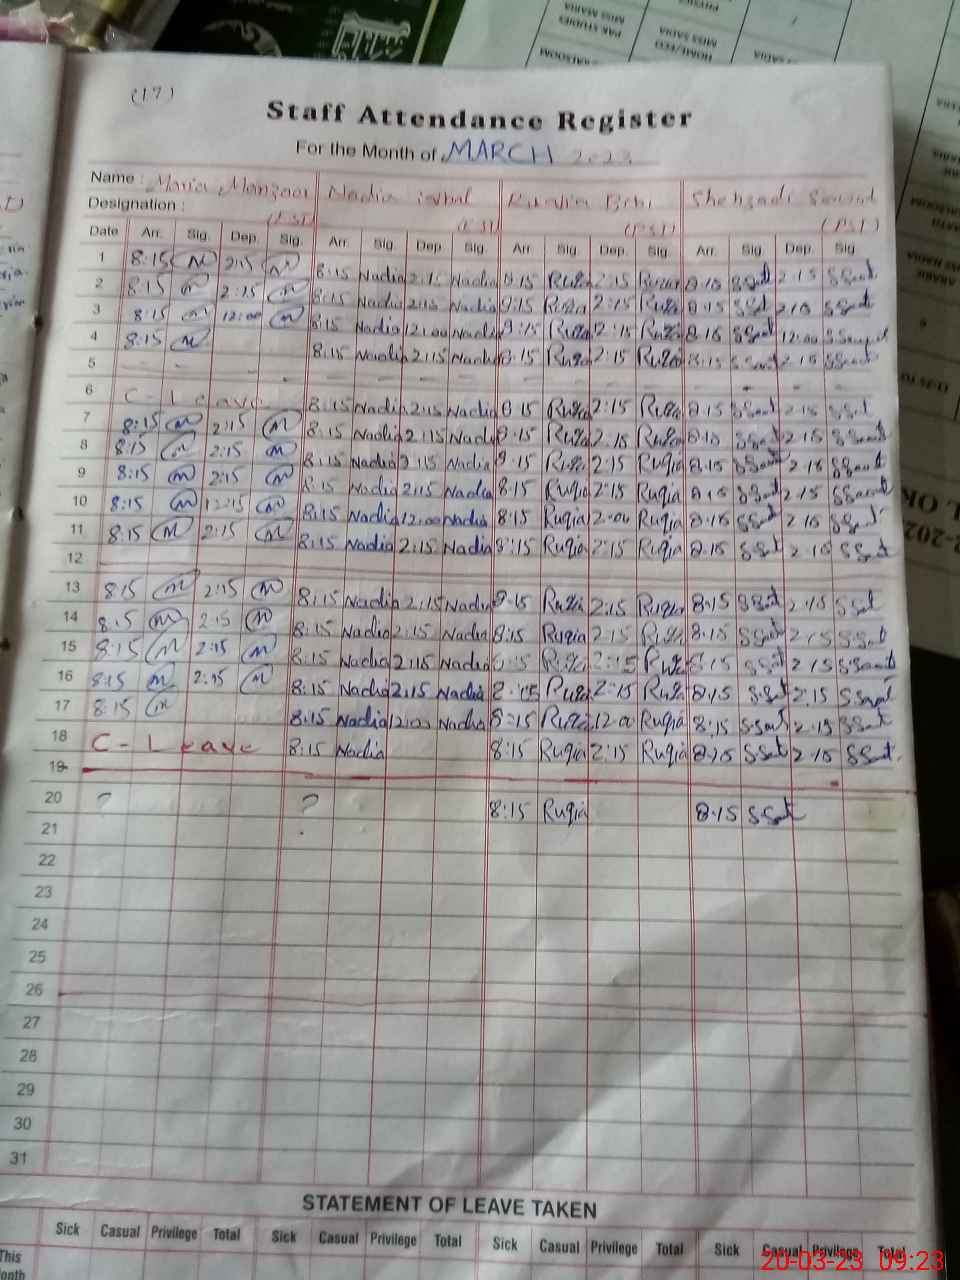 (17)
Staff Attendance Register
For the Month of MARCH 2023
Name : Maria Manzoor Nadia iqbal Bibi Shehzadi
Designation : (PST) (PST) (PST) (PST)
Date Arr. Sig. Dep. Sig. Arr. Sig. Dep. Sig. Arr. Sig. Dep. Sig. Arr. Sig. Dep. Sig.
1 8:15 M 2:15 M 8:15 Nadia 2:15 Nadia 8:15 Ruqia 2:15 Ruqia 8:15 SSaat 2:15 SSaat
2 8:15 M 2:15 M 8:15 Nadia 2:15 Nadia 8:15 Ruqia 2:15 Ruqia 8:15 SSat 2:15 SSaat
3 8:15 M 12:00 M 8:15 Nadia 12:00 Nadia 8:15 Ruqia 2:15 Ruqia 8:15 SSaat 12:00
4 8:15 M 8:15 Nadia 2:15 Nadia 8:15 Ruqia 2:15 Ruqia 8:15 2:15
5
6 C-Leave 8:15 Nadia 2:15 Nadia 8:15 Ruqia 2:15 Ruqia 8:15 SSaat 2:15 SSat
7 8:15 M 2:15 M 8:15 Nadia 2:15 Nadia 8:15 Ruqia 2:15 Ruqia 8:15 SSaat 2:15 SSaat
8 8:15 M 2:15 M 8:15 Nadia 2:15 Nadia 8:15 Ruqia 2:15 Ruqia 8:15 SSaat 2:15 SSaat
9 8:15 M 2:15 M 8:15 Nadia 2:15 Nadia 8:15 Ruqia 2:15 Ruqia 8:15 SSaat 2:15 SSaat
10 8:15 M 12:15 M 8:15 Nadia 12:00 Nadia 8:15 Ruqia 2:00 Ruqia 8:15 SSat 2:15 SSat
11 8:15 M 2:15 M 8:15 Nadia 2:15 Nadia 8:15 Ruqia 2:15 Ruqia 8:15 SSat 2:15 SSat
12
13 8:15 M 2:15 M 8:15 Nadia 2:15 Nadia 8:15 Ruqia 2:15 Ruqia 8:15 SSat 2:15 SSat
14 8:15 M 2:15 M 8:15 Nadia 2:15 Nadia 8:15 Ruqia 2:15 Ruqia 8:15 SSat 2:15 SSat
15 8:15 M 2:15 M 8:15 Nadia 2:15 Nadia 8:15 Ruqia 2:15 Ruqia 8:15 SSat 2:15 SSaat
16 8:15 M 2:15 M 8:15 Nadia 2:15 Nadia 8:15 Ruqia 2:15 Ruqia 8:15 SSat 2:15
17 8:15 M 8:15 Nadia 12:00 Nadia 8:15 Ruqia 12:00 Ruqia 8:15 SSaat 2:15 SSat
18 C-Leave 8:15 Nadia 8:15 Ruqia 2:15 Ruqia 8:15 SSat 2:15 SSat
19
20 ? ? 8:15 Ruqia 8:15 SSat
21
22
23
24
25
26
27
28
29
30
31
STATEMENT OF LEAVE TAKEN
Sick Casual Privilege Total Sick Casual Privilege Total Sick Casual Privilege Total Sick Casual Privilege Total
This
20-03-23 09:23